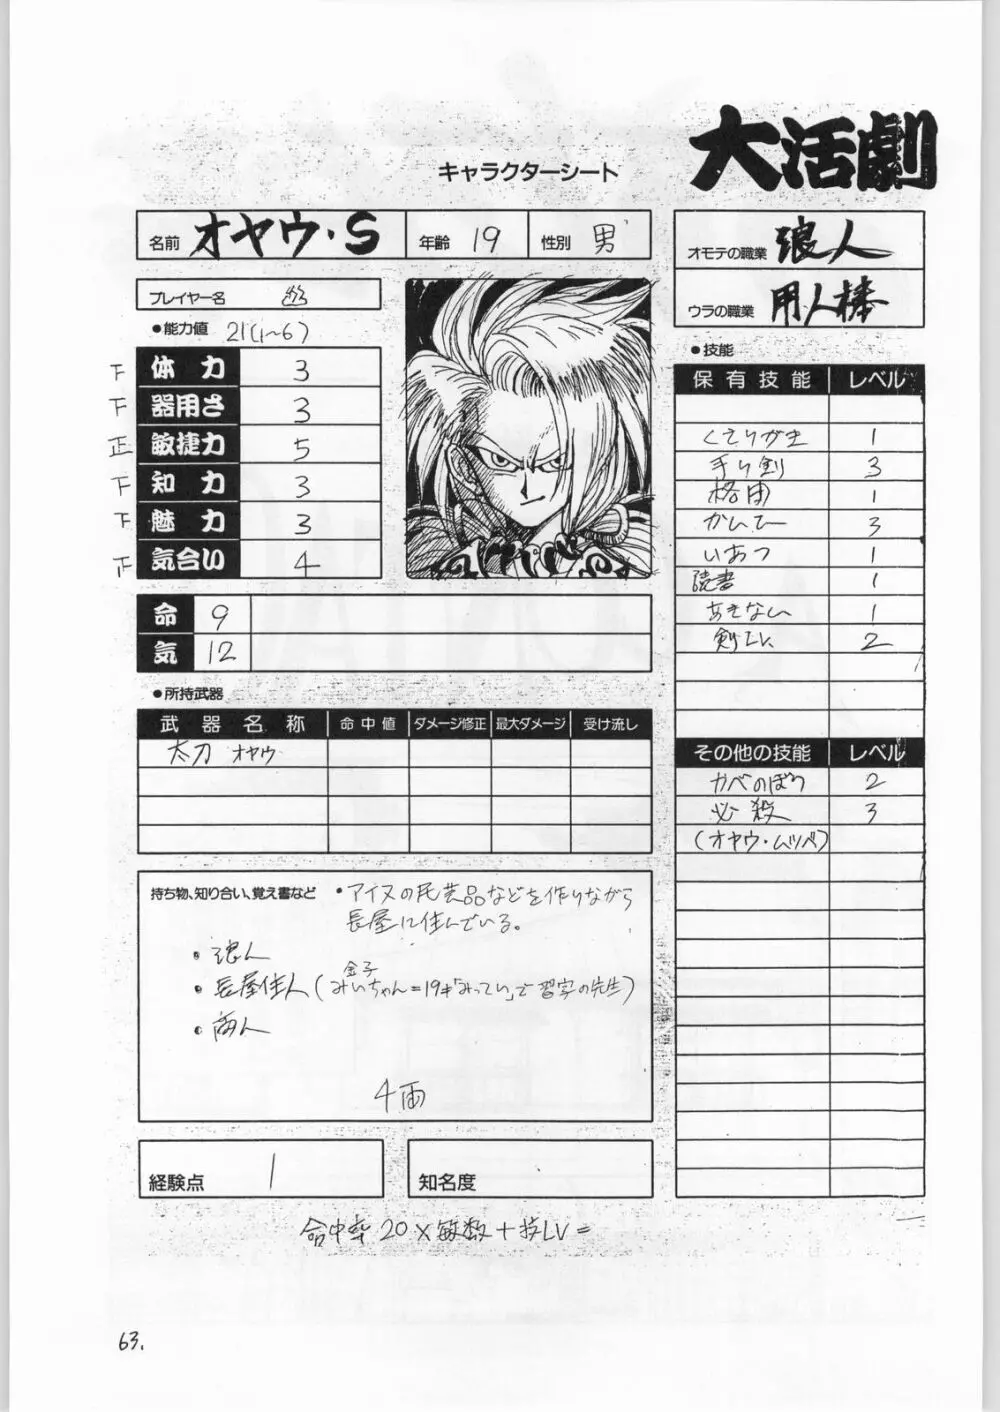 大活劇
キャラクターシート
名前 オヤウ・S 年齢 19 性別 男
オモテの職業 浪人
ウラの職業 用人棒
プレイヤー名
●能力値 21(1~6)
下 体力 3
下 器用さ 3
正 敏捷力 5
下 知力 3
下 魅力 3
正 気合い 4
命 9
気 12
●所持武器
武器名称 命中値 ダメージ修正 最大ダメージ 受け流し
太刀 オヤウ
●技能
保有技能 レベル
くさりがま 1
手り剣 3
格闘 1
かんてー 3
いあつ 1
読書 1
あきない 1
2
その他の技能 レベル
カベのぼり 2
必殺 3
(オヤウ・ムツベ)
持ち物、知り合い、覚え書など
・アイヌの民芸品などを作りながら
長屋に住んでいる。
・浪人
金子
・長屋住人(みいちゃん=19才「みってい」で習字の先生)
・商人
4両
経験点 1
知名度
命中率 20×敏数+技LV=
63.